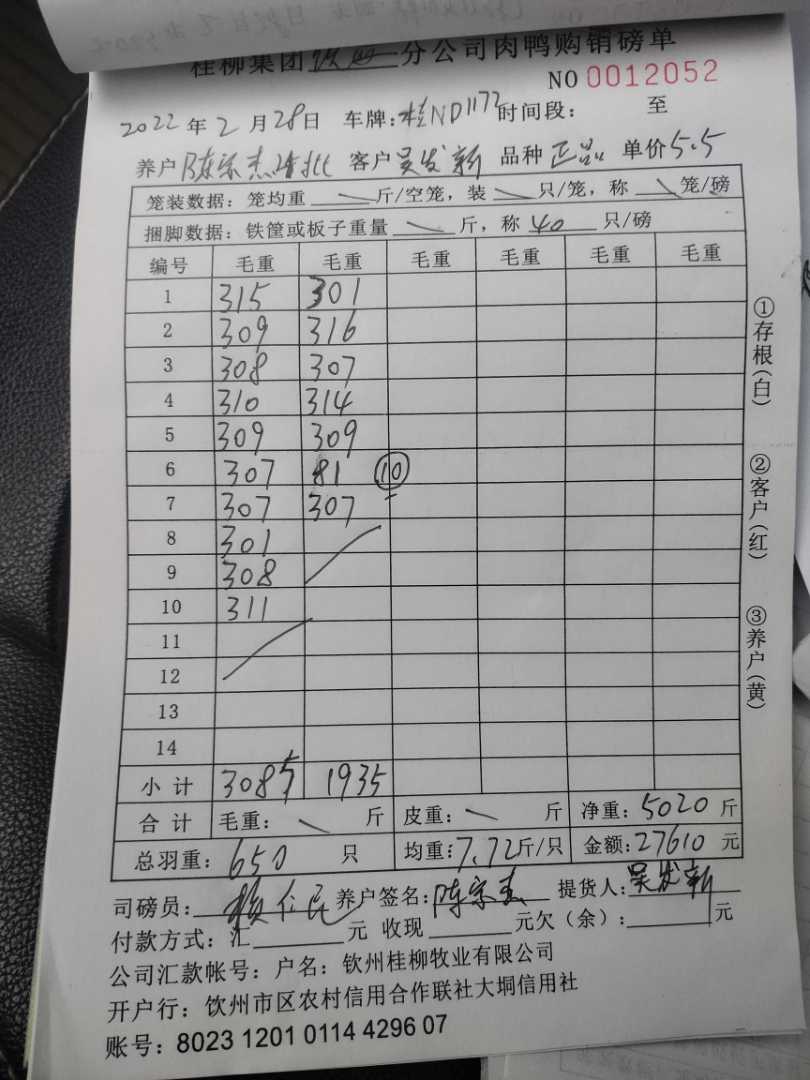 桂柳集团钦州分公司肉鸭购销磅单
NO 0012052
2022年2月28日 车牌:桂ND1172 时间段: 至
养户 陈宗杰 客户 吴发新 品种 正品 单价 5.5
笼装数据:笼均重 \ 斤/空笼,装 \ 只/笼,称 \ 笼/磅
捆脚数据:铁筐或板子重量 \ 斤,称 40 只/磅
编号 毛重 毛重 毛重 毛重 毛重 毛重
1 315 301
2 309 316
3 308 307
4 310 314
5 309 309
6 307 81 ⑩
7 307 307
8 301
9 308
10 311
11
12
13
14
小计 3085 1935
合计 毛重: \ 斤 皮重: \ 斤 净重:5020 斤
总羽重:650 只 均重:7.72斤/只 金额:27610 元
司磅员: 养户签名:陈宗杰 提货人:吴发新
付款方式:汇 元 收现 元欠(余): 元
公司汇款帐号:户名:钦州桂柳牧业有限公司
开户行:钦州市区农村信用合作联社大垌信用社
账号:8023 1201 0114 4296 07
①存根(白)
②客户(红)
③养户(黄)